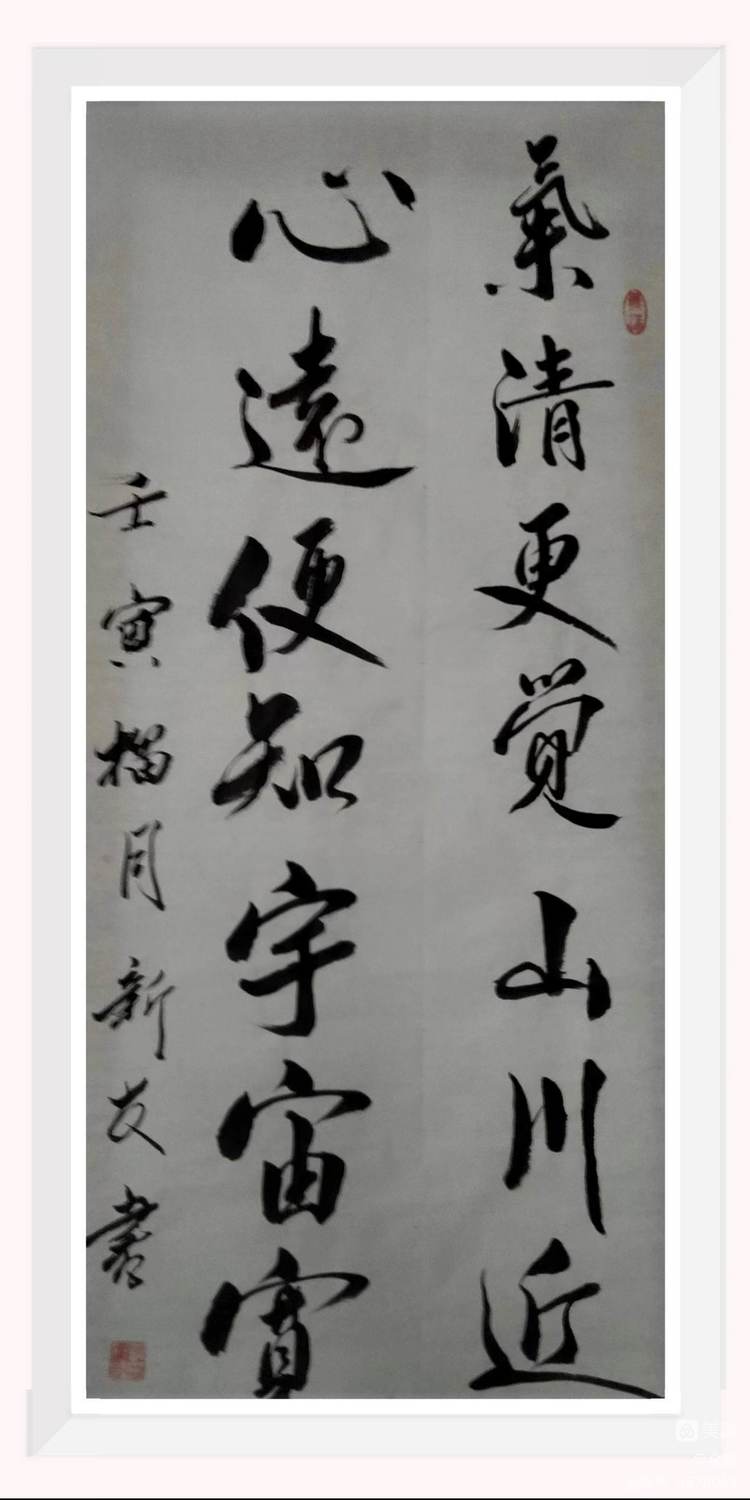 氣清更覺山川近
心遠便知宇宙寬
壬寅榴月新友書
美篇